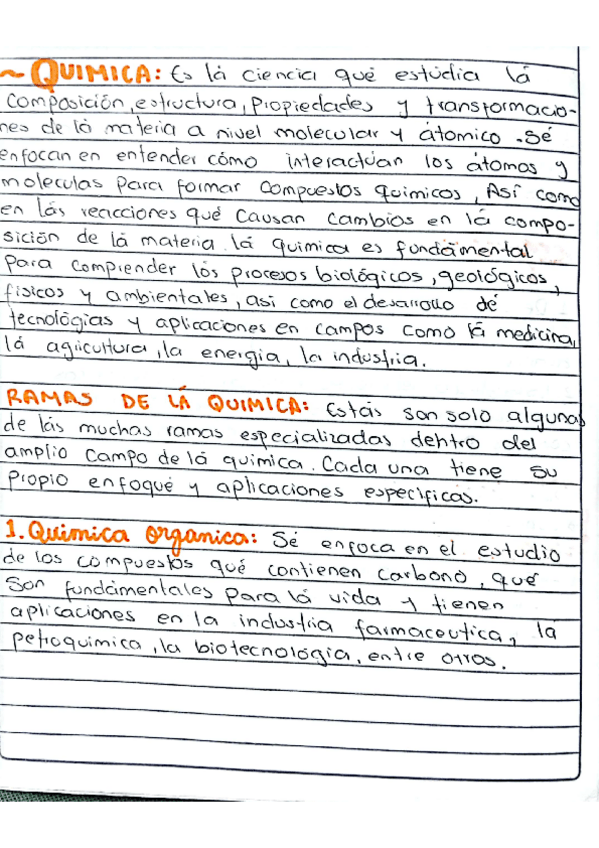 ~ QUIMICA: Es lá ciencia qué estúdia lá
composición, estructura, propiedades y transformacio-
nes de lá materia a nivel molecular y átomico. Sé
enfocan en entender cómo interactúan los átomos y
moleculas para formar compuestos químicos, Así como
en lás reacciones qué causan cambios en lá compo-
sición de lá materia lá química es fundámental
para comprender lós procesos biológicos, geológicos,
físicos y ambientales, así como el desarrollo dé
tecnológias y aplicaciones en campos como lá medicina,
lá agricultura, la energía, la industria.
RAMAS DE LÁ QUIMICA: Estás son solo algunas
de lás muchas ramas especializadas dentro del
amplio campo de lá química. Cada una tiene su
propio enfoqué y aplicaciones especificas.
1. Química organica: Sé enfoca en el estudio
de los compuestos qué contienen carbono, qué
son fundámentales para lá vida y tienen
aplicaciones en la industria farmaceutica, la
petroquímica, la biotecnológia, entre otros.